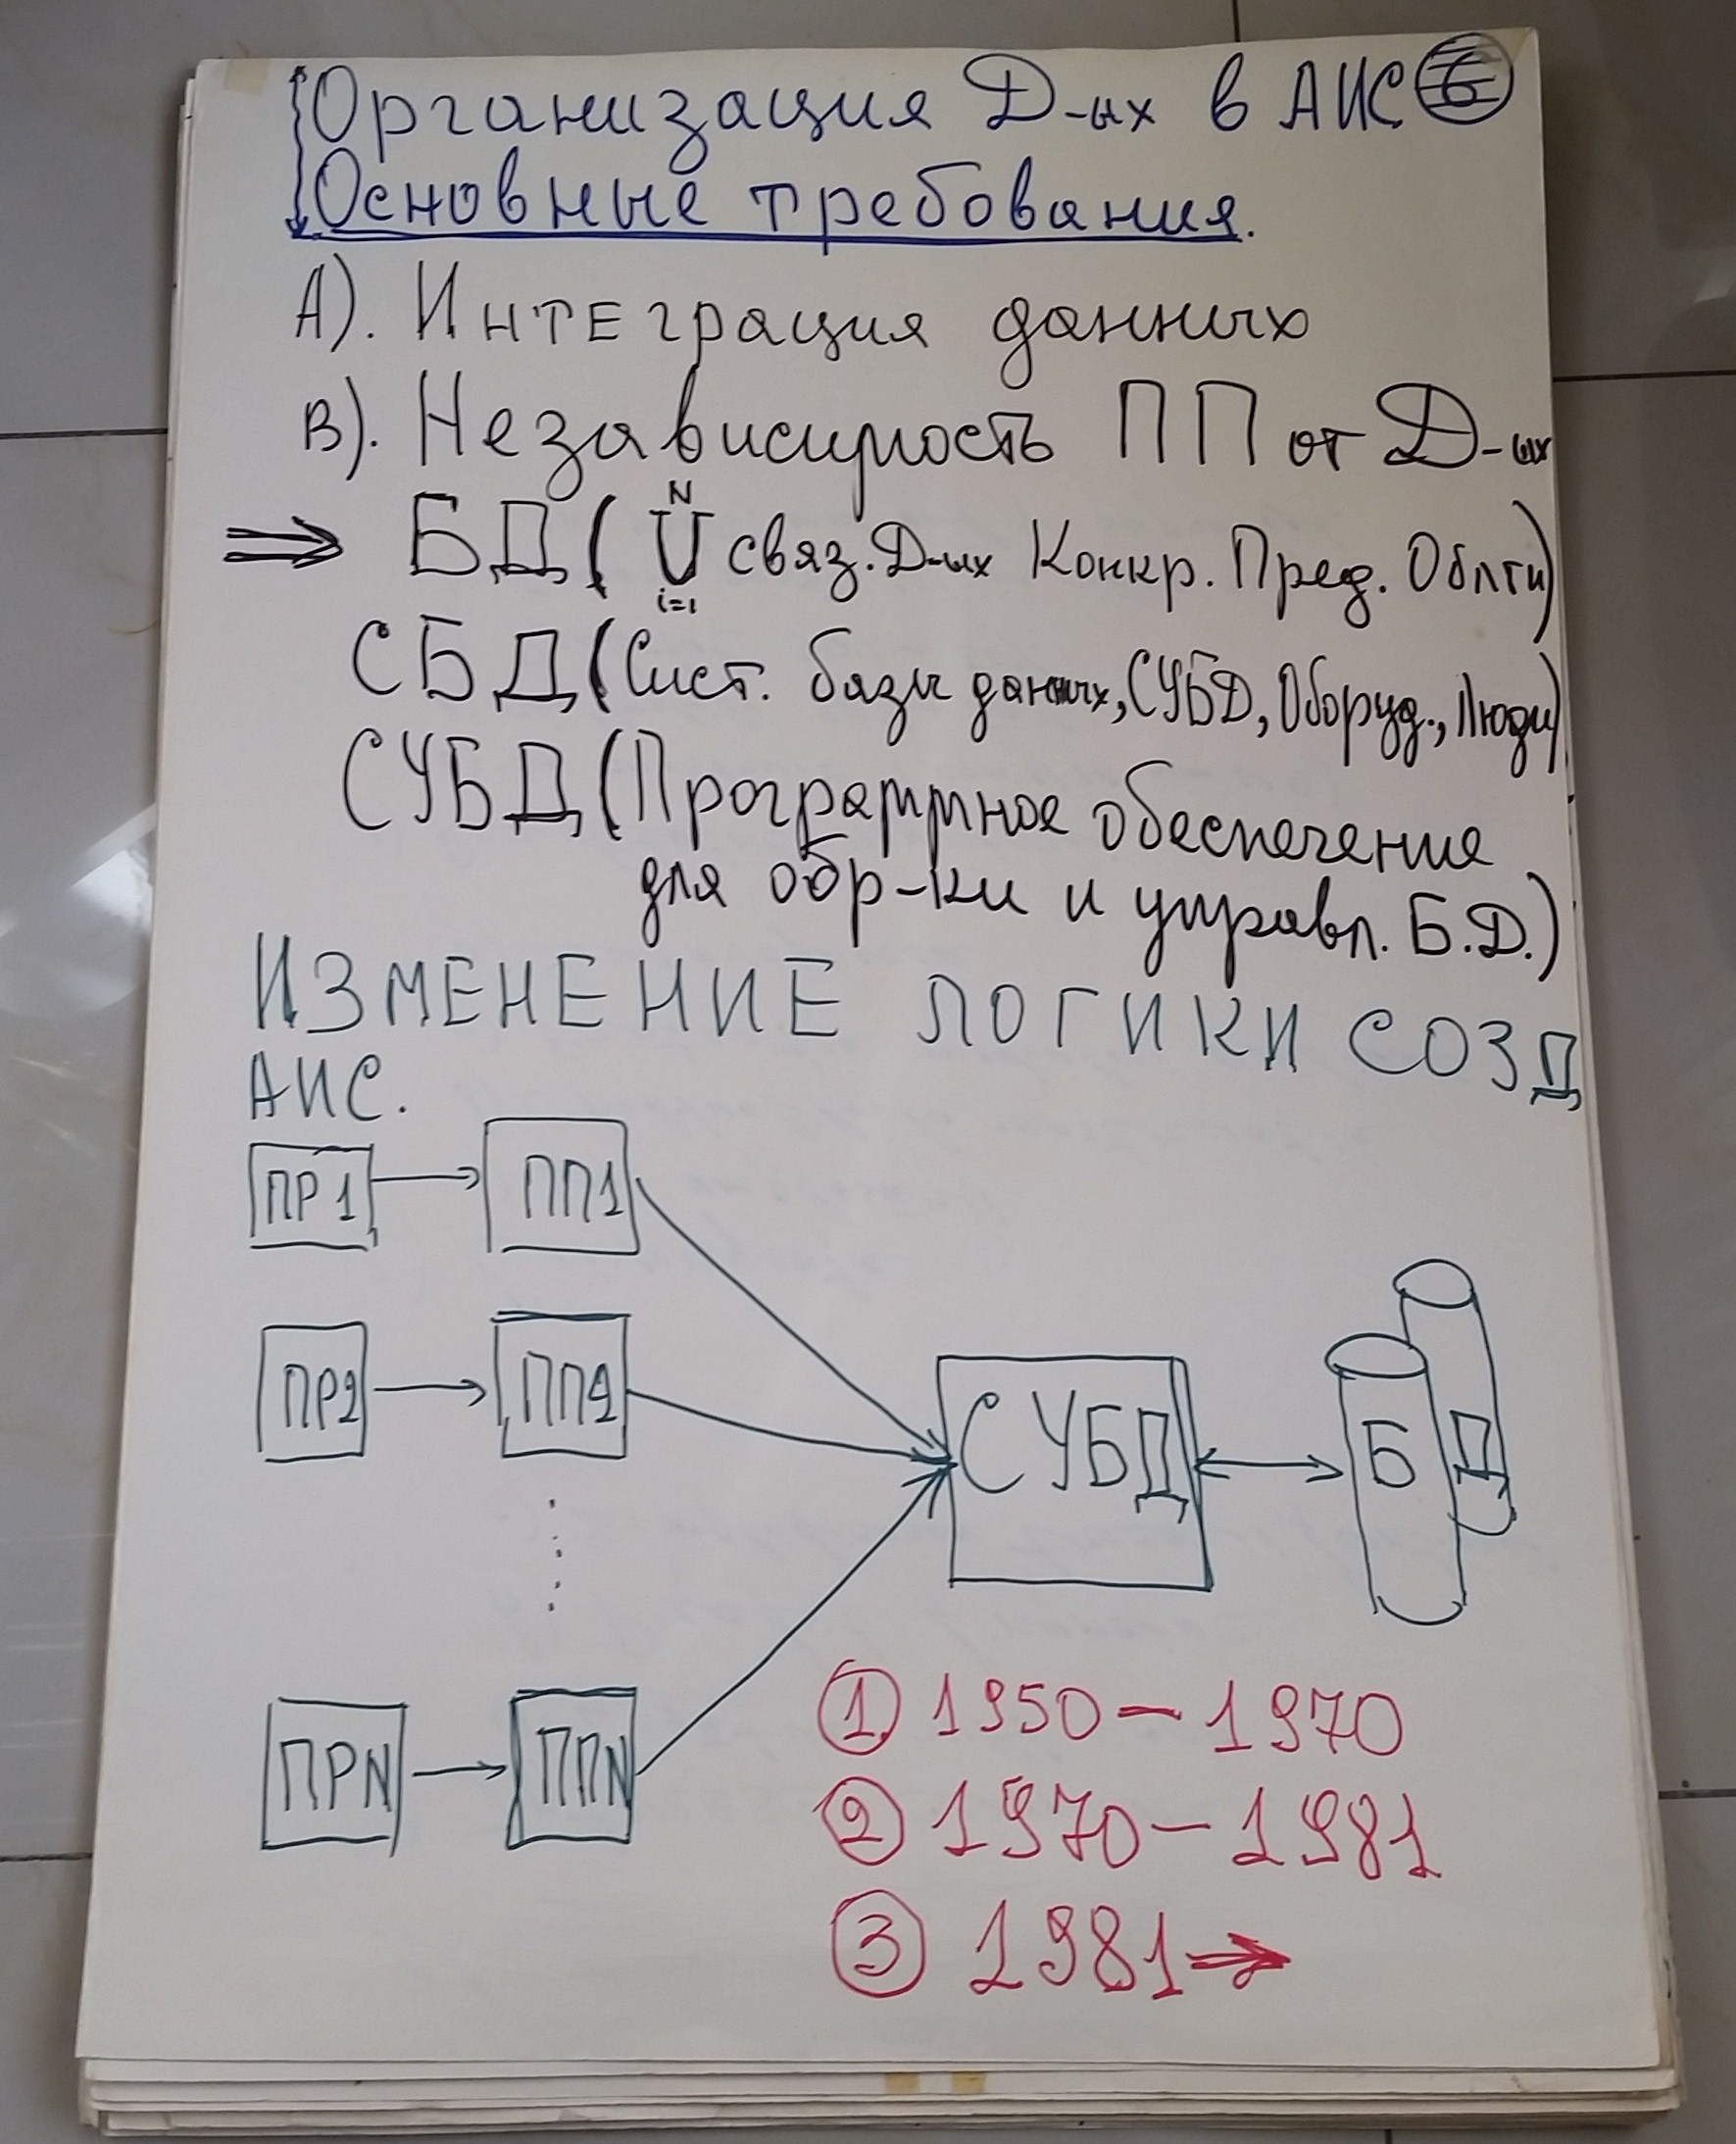 Организация Д-ых в АИС 6
Основные требования.
А). Интеграция данных
В). Независимость ПП от Д-ых
⇒ БД ( N U i=1 связ. Д-ых Конкр. Пред. Облти)
СБД (Сист. базы данных, СУБД, Оборуд., Люди)
СУБД (Программное обеспечение
для обр-ки и управл. Б.Д.)
ИЗМЕНЕНИЕ ЛОГИКИ СОЗД
АИС.
ПР1 → ПП1
ПР2 → ПП2
СУБД ↔ БД
ПРN → ППN
① 1950 – 1970
② 1970 – 1981
③ 1981 ⇒